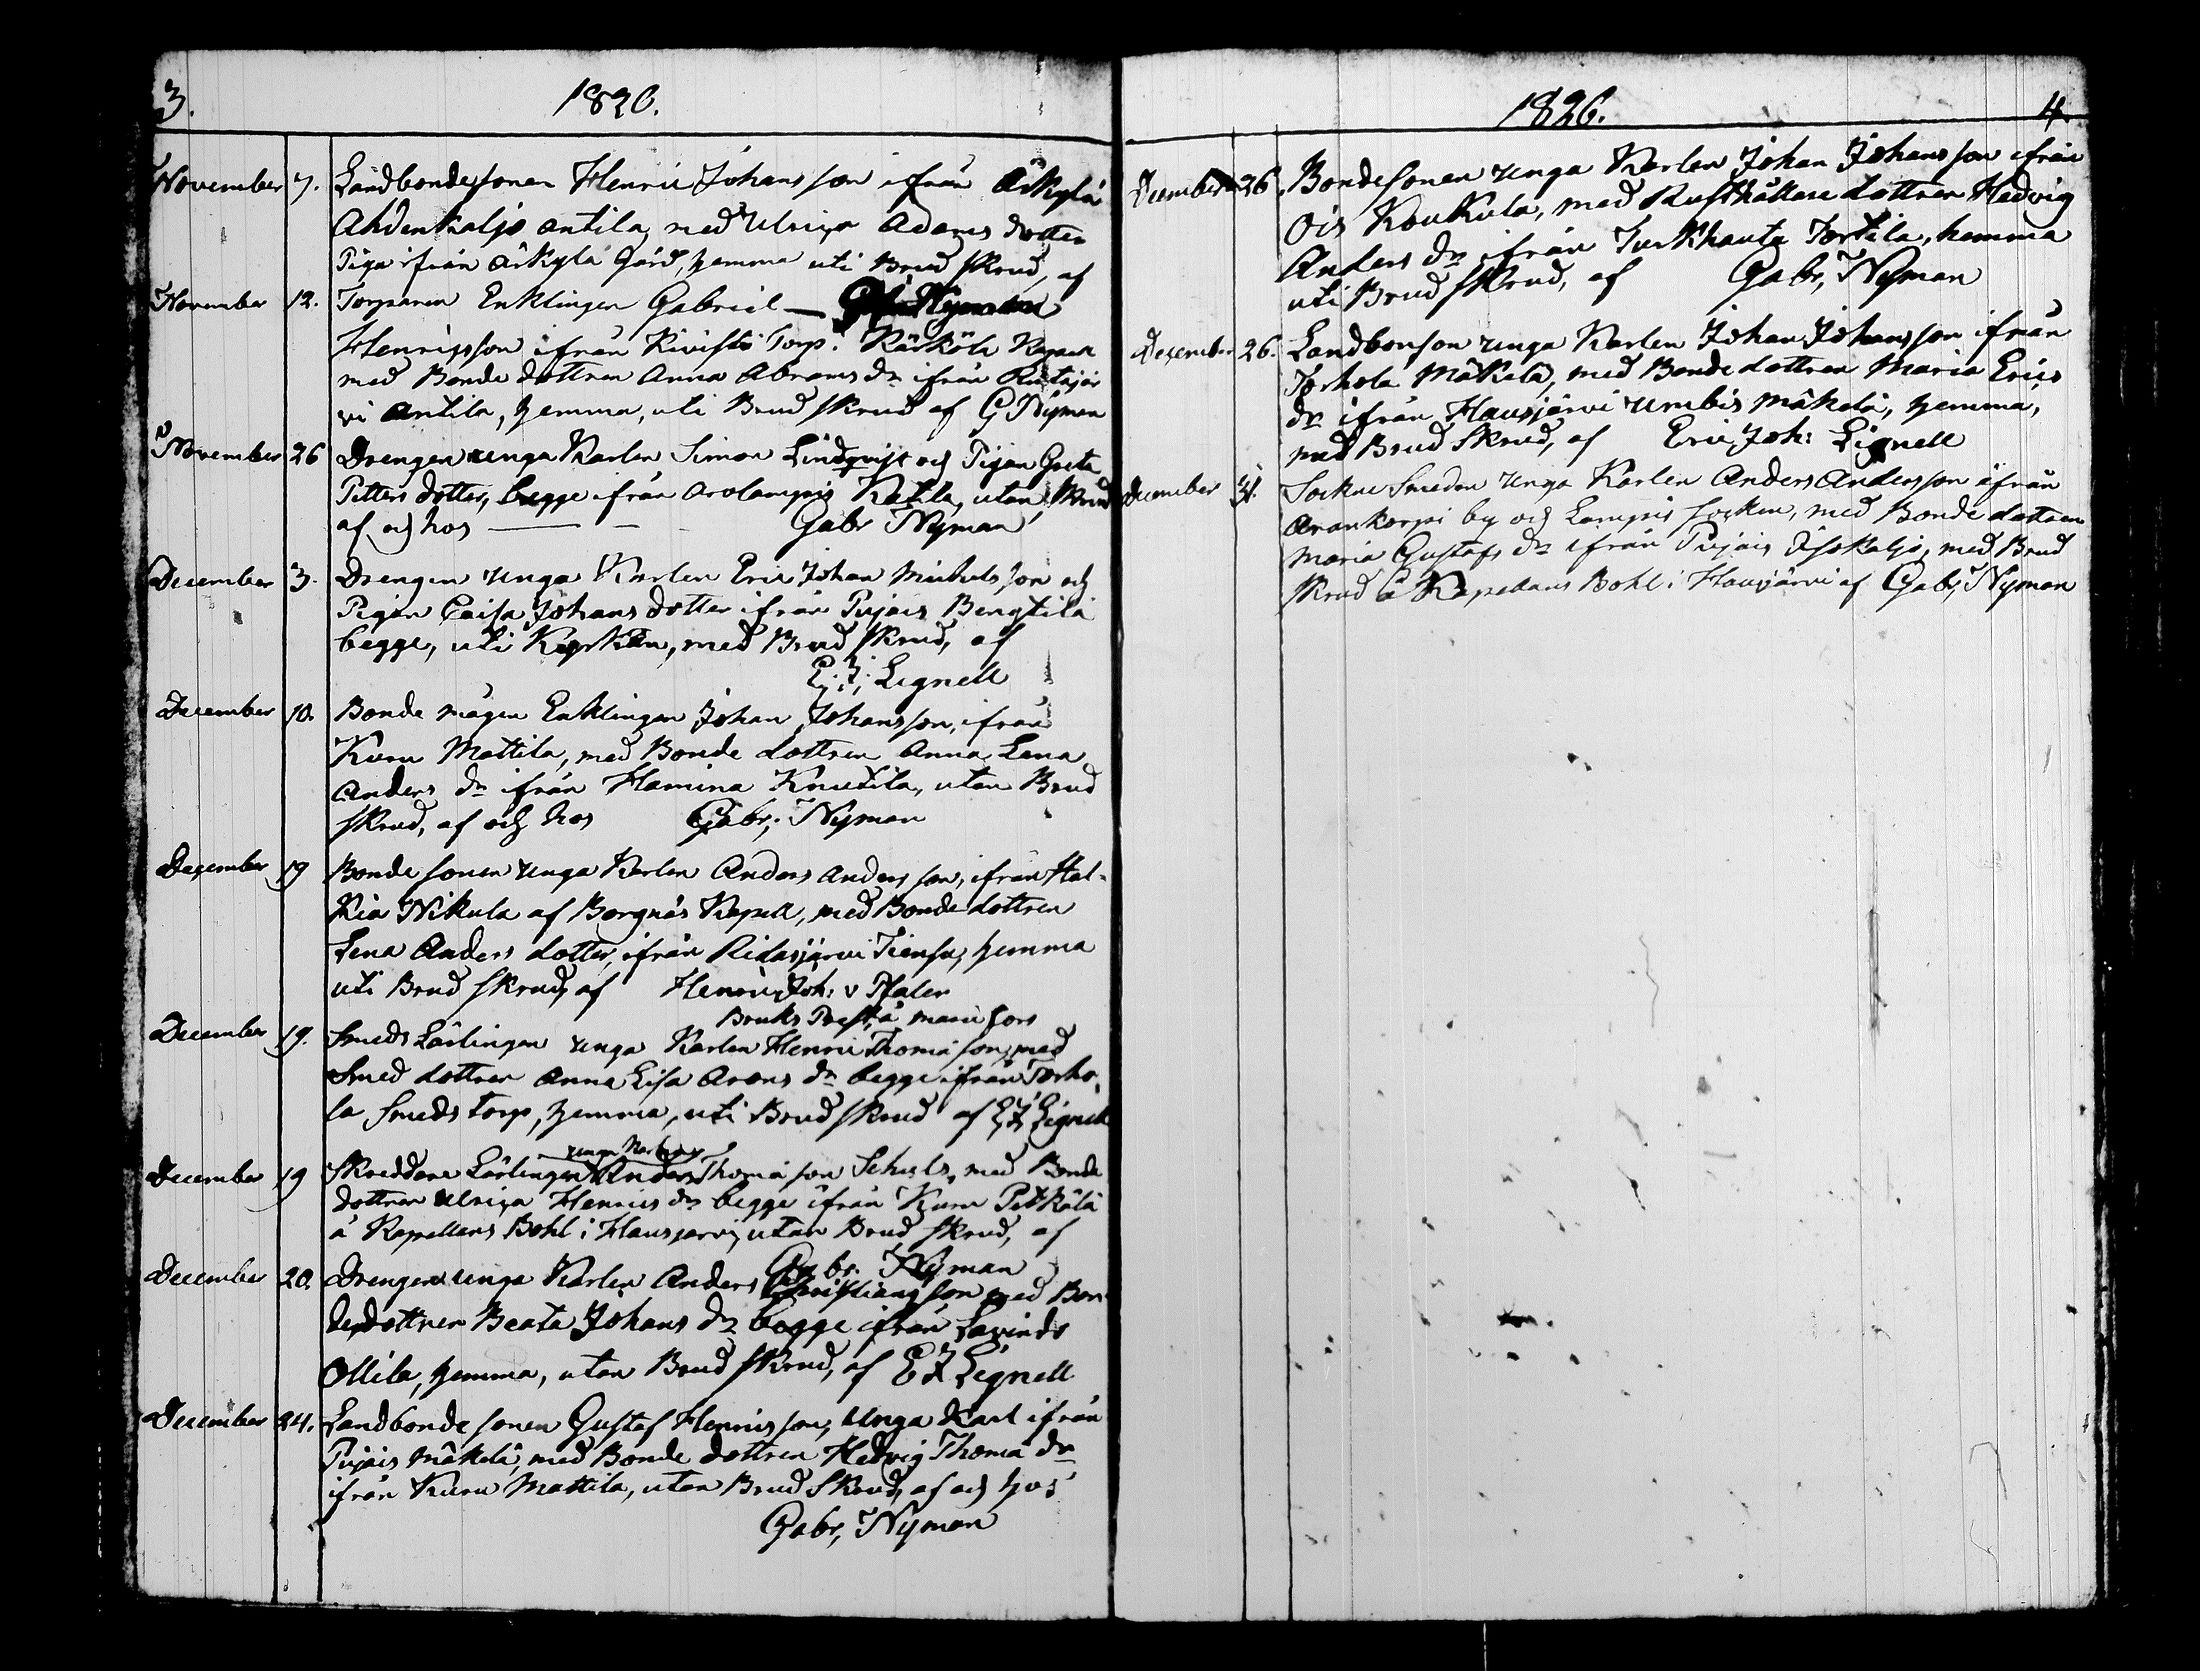 3.
1826.
November 7. Landbondesonen Henric Johansson ifrån Årkylä
Ahdenkaljo Antila, med Ulrica Adams dotter
Piga ifrån Årkylä Gård, hemma uti Brud skrud, af
November 12. Torparen Enklingen Gabriel — Nyman
Henricsson ifrån Kivistö Torp. Kärkölä Kapell
med Bonde dottren Anna Abrams dr ifrån Ridasjär
vi Antila, hemma, uti Brud skrud af G Nyman
November 26 Drengen unga Karlen Simon Lindqvist och Pigan Greta
Petters dotter, begge ifrån Arolampis Katila, utan skrud
af och hos — — Gabr Nyman
December 3. Drengen unga Karlen Eric Johan Michelsson och
Pigan Caisa Johans dotter ifrån Pujais Bengtilä
begge, uti Kyrkan, med Brud skrud, af
E; J; Lignell
December 10. Bonde mågen Enklingen Johan Johansson, ifrån
Kuru Mattila, med Bonde dottren Anna Lena
Anders dr ifrån Hamina Knutila, utan Brud
skrud, af och hos Gabr; Nyman
December 19 Bonde sonen unga Karlen Anders Andersson, ifrån Hal-
kia Nikula af Borgnäs Kapell, med Bonde dottren
Lena Anders dotter, ifrån Ridasjärvi Tiensu, hemma
uti Brud skrud, af Henric Joh: v Pfaler
Bruks Prest å Marie fors
December 19. Smeds Lärlingen unga Karlen Henric Thomasson, med
Smed dottren Anna Lisa Arons dr begge ifrån Torho,
la Smeds torp, hemma, uti Brud skrud af E J Lignell
unga Karlen
December 19 Skreddare Lärlingen Anders Thomasson Schuls, med Bonde
dottren Ulrica Henrics dr begge ifrån Kuru Pitkälä
å Kapellans Bohl i Hausjervi, utan Brud skrud, af
Gabr. Nyman
December 20. Drengen unga Karlen Anders Christiansson med Bon
dedottren Beata Johans dr begge ifrån Lavinds
Ollila, hemma, utan Brud skrud, af E J Lignell
December 24. Landbonde sonen Gustaf Henricsson, Unga Karl ifrån
Pujais Mäkelä, med Bonde dottren Hedvig Thomä dr
ifrån Kuru Mattila, utan Brud Skrud, af och hos
Gabr, Nyman
1826. 4.
December 26. Bondesonen unga Karlen Johan Johansson ifrån
Ois Koukula, med Rusthållare dottren Hedvig
Anders dr ifrån Turkhauta Tortila, hemma
uti Brud skrud, af Gabr, Nyman
December 26. Landbonson unga Karlen Johan Johansson ifrån
Torhola Mäkelä, med Bonde dottren Maria Erics
dr ifrån Hausjärvi Umbis Mäkelä, hemma,
med Brud Skrud, af Eric Joh: Lignell
December 31. Sockne Smeden unga Karlen Anders Andersson ifrån
Arankorpi by och Lampis socken, med Bonde dottren
Maria Gustafs dr ifrån Pujais Isokaljo, med Brud
skrud å Kapellans Bohl i Hausjärvi af Gabr, Nyman